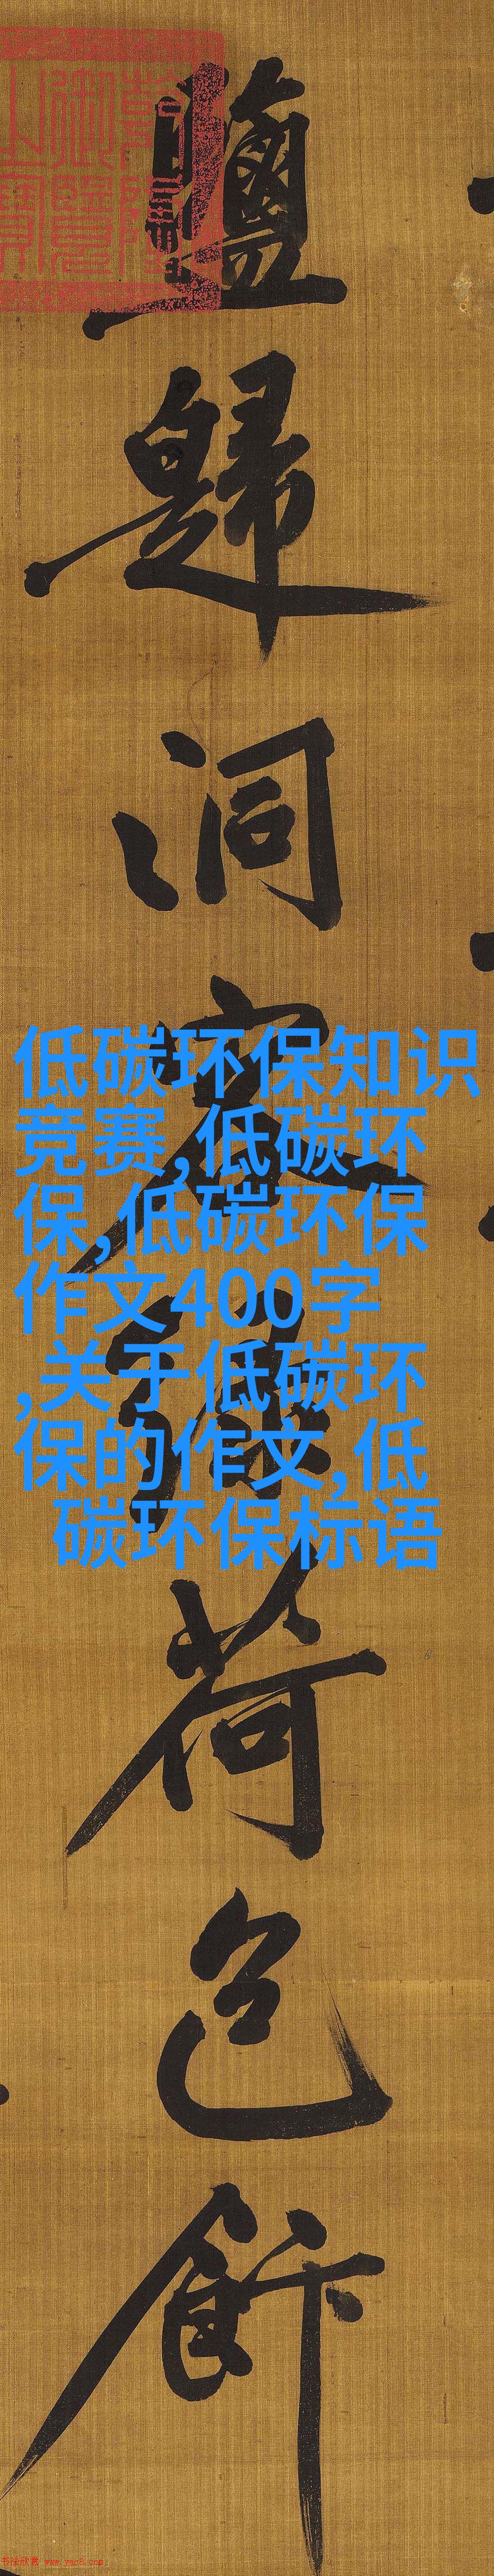 鹽歸洞客荷包飰
低碳环保知识
竞赛,低碳环
保,低碳环保
作文400字
,关于低碳环
保的作文,低
碳环保标语
书法欣赏 www.yac8.com